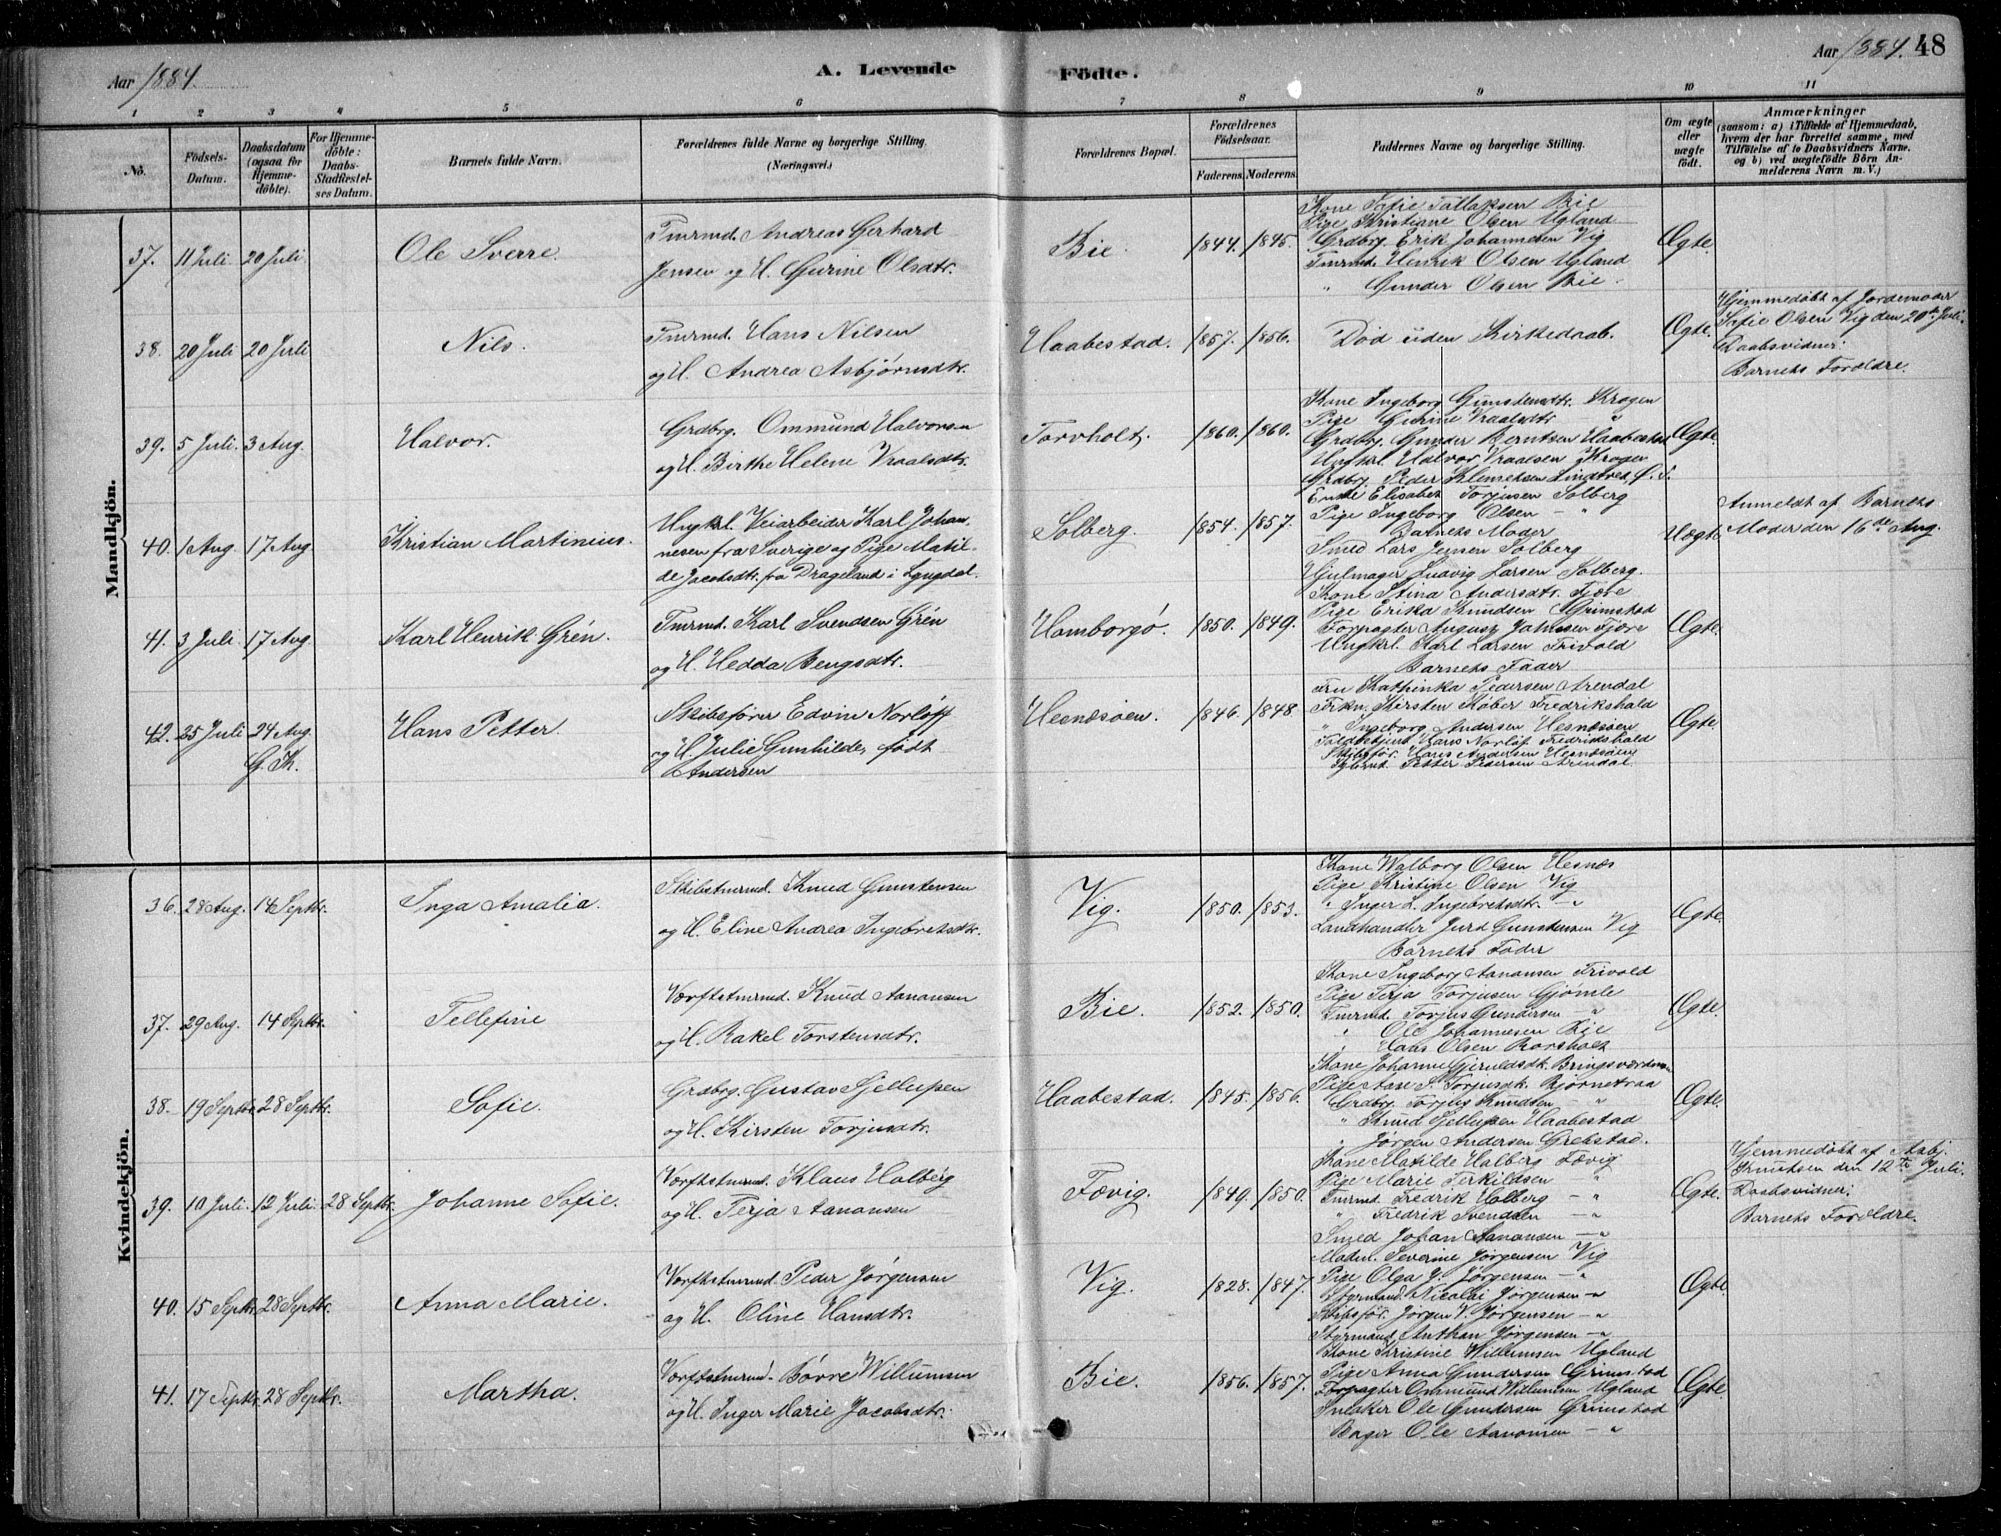 Aar 1884.
A. Levende
Födte.
Aar 1884. 48
1 2 3 4 5 6 7 8 9 10 11
No.
Födsels-Datum.
Daabsdatum (ogsaa for Hjemme-döbte).
For Hjemme-döbte: Daabs-Stadfestel-ses Datum.
Barnets fulde Navn.
Forældrenes fulde Navne og borgerlige Stilling.
(Næringsvei.)
Forældrenes Bopæl.
Forældrenes Födselsaar.
Faderens. Moderens.
Faddernes Navne og borgerlige Stilling.
Om ægte eller uægte födt.
Anmærkninger
(saasom: a) i Tilfælde af Hjemmedaab,
hvem der har forrettet samme, med
Tilföielse af to Daabsvidners Navne.
og b) ved uægtefödte Börn An-
melderens Navn m. V.)
Mandkjön.
37. 11 Juli 20 Juli
Ole Sverre.
Tmrmd. Andreas Gerhard
Jensen og H. Gurine Olsdtr.
Bie. 1844. 1845.
Kone Sofie Tallaksen Bie
Pige Kristiane Olsen Ugland
Grdbrg. Erik Johannesen Vig
Tmrmd. Henrik Olsen Ugland
" Gunder Olsen Bie.
Ægte.
38. 20 Juli 20 Juli
Nils.
Tmrmd. Hans Nilsen
og H. Andrea Asbjørnsdtr.
Haabestad. 1857. 1856.
Død uden Kirkedaab.
Ægte.
Hjemmedøbt af Jordemoder
Sofie Olsen Vig den 20de Juli.
Daabsvidner:
Barnets Forældre.
39. 5 Juli. 3 Aug.
Halvor.
Grdbrg. Ommund Halvorsen
og H. Birthe Helene Vraalsdtr.
Torvholt. 1860. 1860.
Kone Ingeborg Gunstensdtr. Krogen
Pige Gurine Vraalsdtr "
Grdbrg. Gunder Berntsen Haabestad
Ungkrl. Halvor Vraalsen Krogen
Grdbrg. Peder Klemetsen Lindtveit, Ø. S.
Ægte.
40. 1 Aug. 17 Aug
Kristian Martinius.
Ungkrl. Veiarbeider Karl Johan-
nesen fra Sverige og Pige Matil-
de Jacobsdtr. fra Drageland i Lyngdal.
Solberg. 1854. 1857.
Enke Elisabet Torjusen Solberg
Pige Ingeborg Olsen - "
Barnets Moder
Smed Lars Jensen Solberg
Hjulmager Ludvig Larsen Solberg.
Uægte
Anmeldt af Barnets
Moder den 16de Aug.
41. 3 Juli. 17 Aug.
Karl Henrik Grén.
Tmrmd. Karl Svendsen Grén
og H. Hedda Bengsdtr.
Homborgø. 1850. 1849.
Kone Stina Andersdtr. Fjære
Pige Erika Knudsen Grimstad
Forpagter August Johnsen Fjære
Ungkrl. Karl Larsen Frivold
Barnets Fader
Ægte.
42. 25 Juli 24 Aug
G. K.
Hans Petter.
Skibsfører Edvin Norløff
og H. Julie Gunhilde, født
Andersen
Hesnæsøen. 1846. 1848
Fru Kathinka Pedersen Arendal
Frkn. Kirsten Køber Fredrikshald
" Ingeborg Andersen Hesnæsøen
Toldbetjent Hans Norløf Fredrikshald
Skibsfør. Hans Andersen Hesnæsøen
Styrmd. Petter Pedersen Arendal.
Ægte.
Kvindekjön.
36. 28 Aug. 14 Septbr.
Inga Amalia.
Skibstmrmd. Knud Gunstensen
og H. Eline Andrea Ingebretsdtr.
Vig. 1850. 1853.
Kone Walborg Olsen Hesnæs
Pige Kristine Olsen Vig
" Inger L. Ingebretsdtr. - "
Landhandler Jurd Gunstensen Vig
Barnets Fader
Ægte.
37. 29 Aug. 14 Septbr.
Tellefine
Værftstmrmd. Knud Aanonsen
og H. Rakel Torstensdtr.
Bie. 1852. 1850.
Kone Ingeborg Aanonsen Frivold
Pige Terja Torjusen Gjømle
Tmrmd. Torjus Gundersen - "
" Ole Johannesen Bie
" Hans Olsen Rorsholt
Ægte.
38. 19 Septbr. 28 Septbr.
Sofie.
Grdbrg. Gustav Tjellufsen
og H. Kirsten Torjusdtr.
Haabestad. 1845. 1856.
Kone Johanne Gjeruldsdtr. Bringsværdmoen
Pige Aase S. Torjusdtr. Bjørnetraa
Grdbrg. Torjus Knudsen - "
" Knud Tjellufsen Haabestad
" Jørgen Andersen Grefstad.
Ægte.
39. 10 Juli. 12 Juli. 28 Septbr.
Johanne Sofie.
Værftstmrmd. Klaus Holberg
og H. Terja Aanonsen
Fævig. 1849. 1850.
Kone Matilde Holberg Fævig
Pige Marie Terkildsen - "
Tmrmd. Fredrik Holberg - "
" Fredrik Svendsen - "
Smed Johan Aanonsen - "
Ægte.
Hjemmedøbt af Asbj.
Knutsen den 12te Juli.
Daabsvidner:
Barnets Forældre.
40. 15 Septbr. 28 Septbr.
Anna Marie.
Værftstmrmd. Peder Jørgensen
og H. Oline Hansdtr.
Vig. 1828. 1847.
Madm. Severine Jørgensen Vig
Pige Olga V. Jørgensen - "
Styrmand Nicolai Jørgensen - "
Skibsfør. Jørgen V. Jørgensen - "
Styrmand Anthon Jørgensen - "
Ægte.
41. 17 Septbr. 28 Septbr.
Martha.
Værftstmrmd. Børre Willumsen
og H. Inger Marie Jacobsdtr.
Bie. 1856. 1857.
Kone Kristine Willumsen Ugland
Pige Anna Gundersen Grimstad
Forpagter Ommund Willumsen Ugland
Snedker Ole Gundersen Grimstad
Bager Ole Aanonsen - "
Ægte.